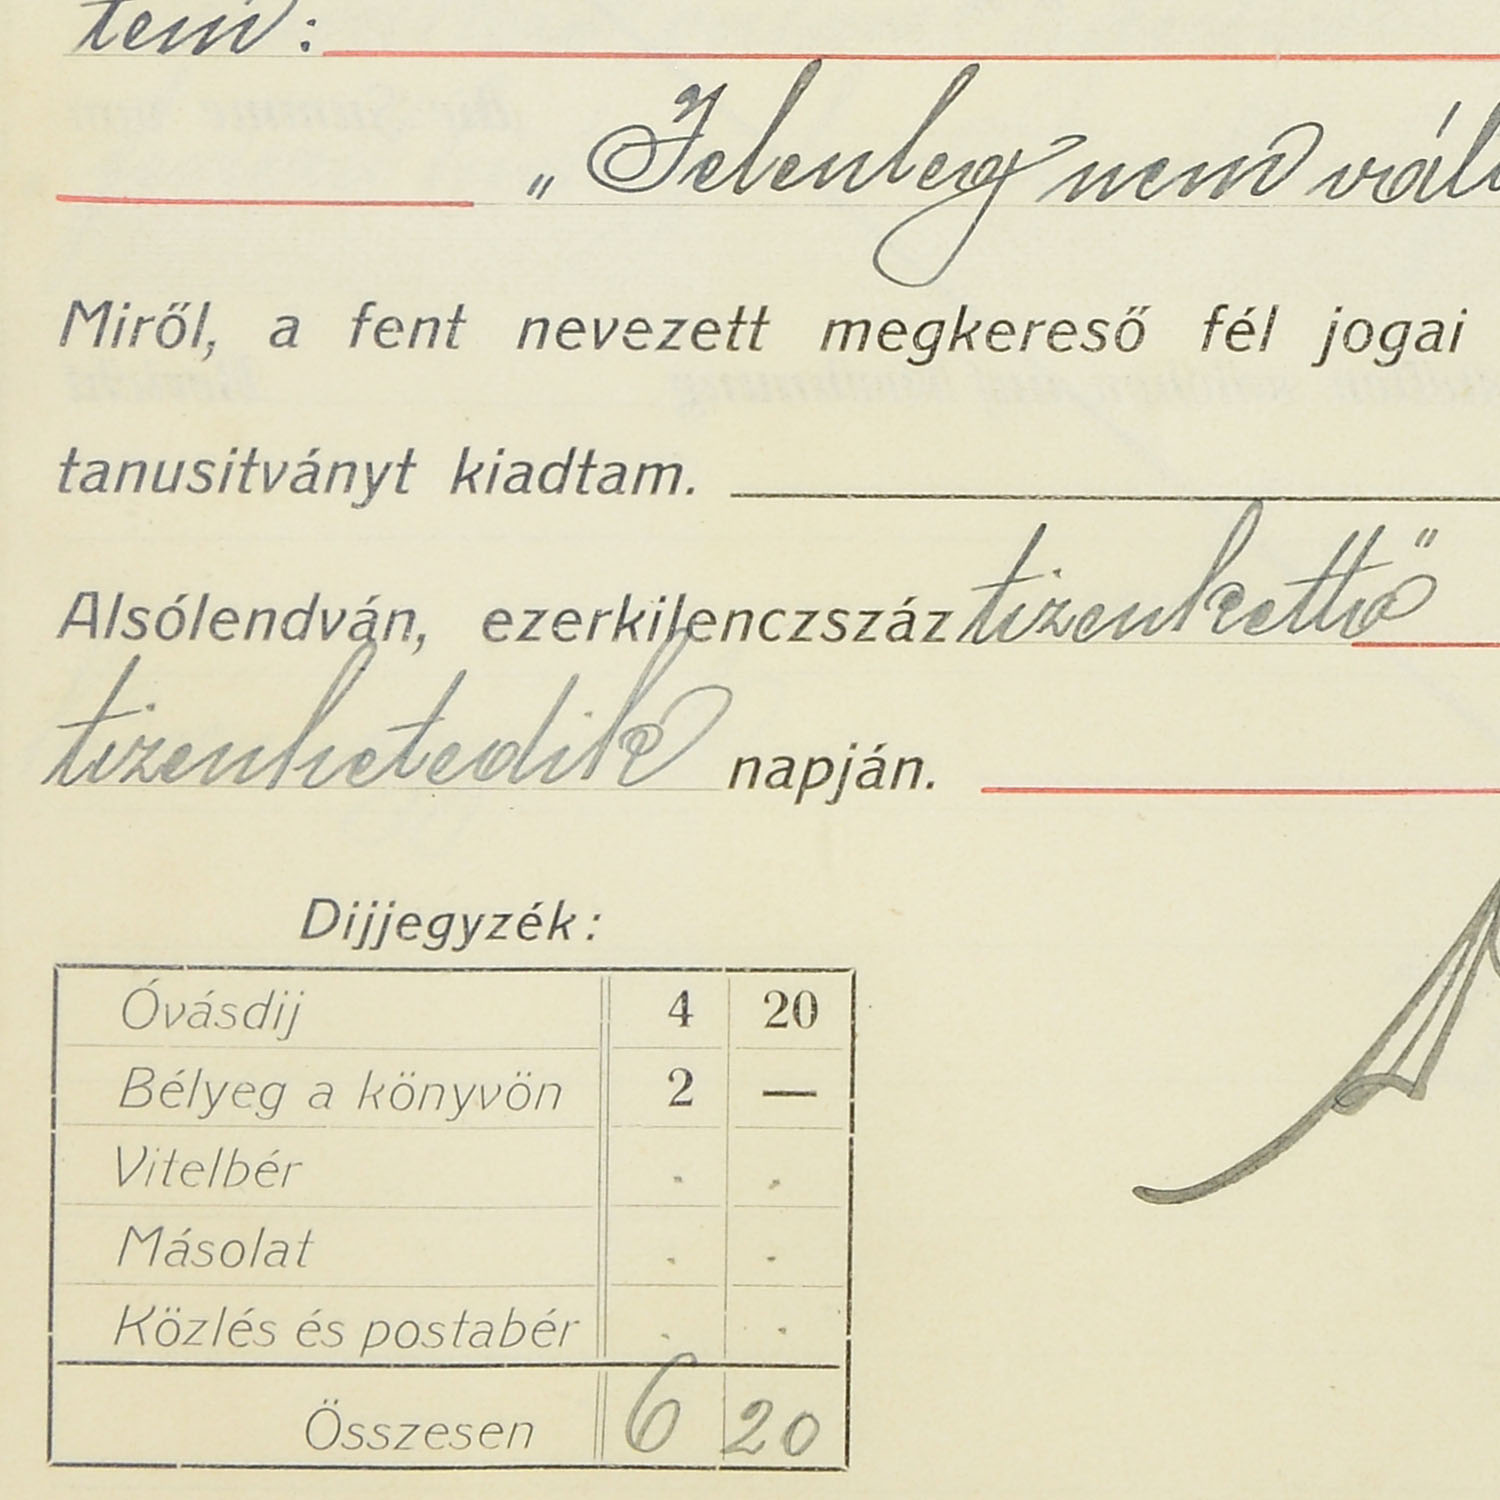 tem :
„Jelenleg nem vál
Miről, a fent nevezett megkereső fél jogai
tanusitványt kiadtam.
Alsólendván, ezerkilenczszáz tizenkettő
tizenhetedik napján.
Dijjegyzék:
Óvásdij 4 20
Bélyeg a könyvön 2 —
Vitelbér . .
Másolat . .
Közlés és postabér . .
Összesen 6 20